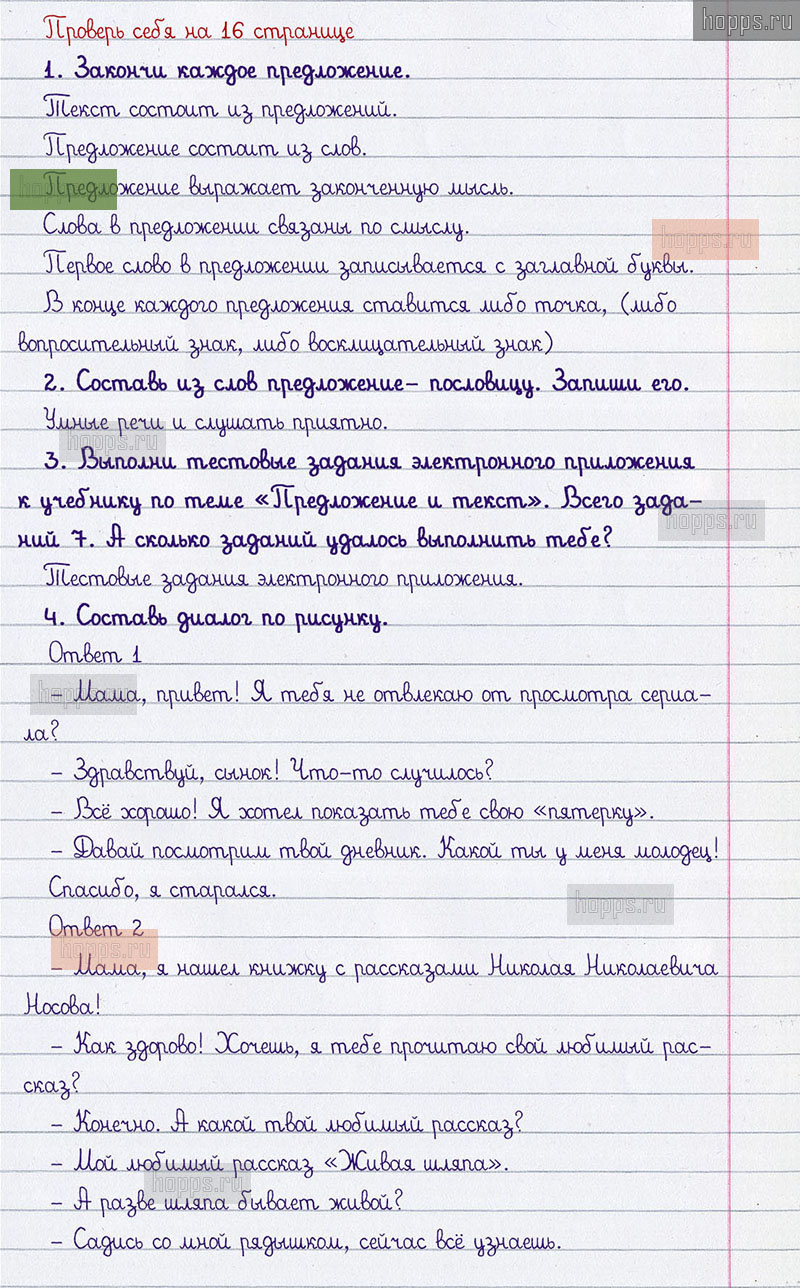 hopps.ru
Проверь себя на 16 странице
1. Закончи каждое предложение.
Текст состоит из предложений.
Предложение состоит из слов.
hopps.ru
Предложение выражает законченную мысль.
Слова в предложении связаны по смыслу.
hopps.ru
Первое слово в предложении записывается с заглавной буквы.
В конце каждого предложения ставится либо точка, (либо
вопросительный знак, либо восклицательный знак)
2. Составь из слов предложение– пословицу. Запиши его.
Умные речи и слушать приятно.
hopps.ru
3. Выполни тестовые задания электронного приложения
к учебнику по теме «Предложение и текст». Всего зада–
hopps.ru
ний 7. А сколько заданий удалось выполнить тебе?
Тестовые задания электронного приложения.
4. Составь диалог по рисунку.
Ответ 1
hopps.ru
– Мама, привет! Я тебя не отвлекаю от просмотра сериа–
ла?
– Здравствуй, сынок! Что–то случилось?
– Всё хорошо! Я хотел показать тебе свою «пятерку».
– Давай посмотрим твой дневник. Какой ты у меня молодец!
Спасибо, я старался.
hopps.ru
Ответ 2
hopps.ru
– Мама, я нашел книжку с рассказами Николая Николаевича
Носова!
– Как здорово! Хочешь, я тебе прочитаю свой любимый рас–
сказ?
– Конечно. А какой твой любимый рассказ?
– Мой любимый рассказ «Живая шляпа».
hopps.ru
– А разве шляпа бывает живой?
– Садись со мной рядышком, сейчас всё узнаешь.